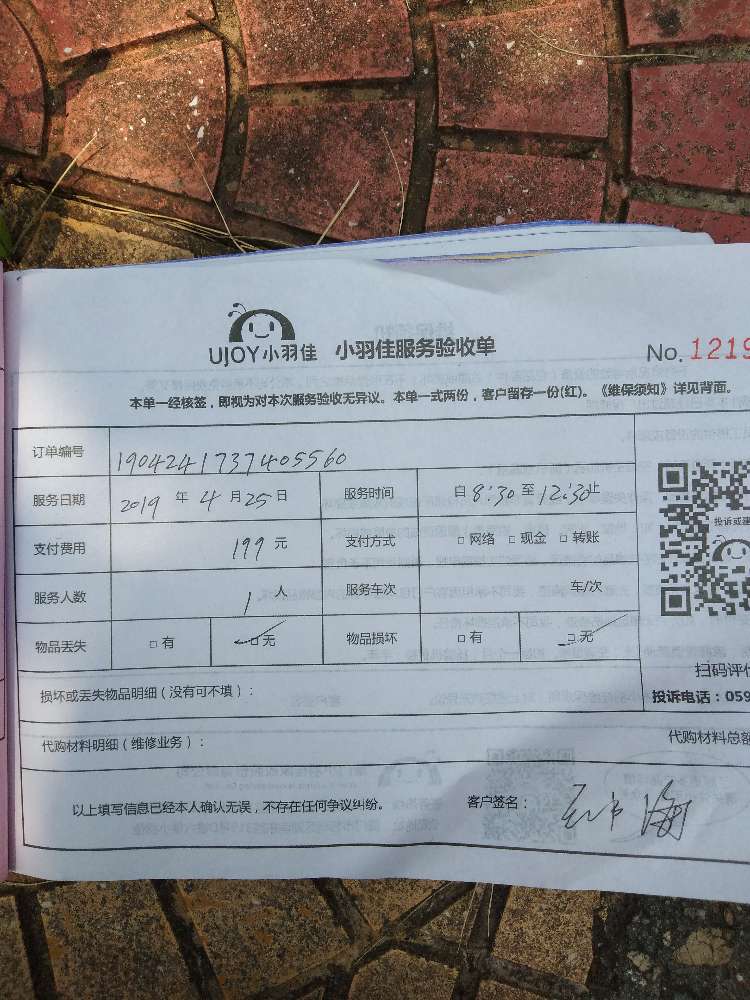 UJOY小羽佳 小羽佳服务验收单
No. 1219
本单一经核签，即视为对本次服务验收无异议。本单一式两份，客户留存一份(红)。《维保须知》详见背面。
订单编号 1904241737405560
服务日期 2019 年 4 月 25 日 服务时间 自 8:30 至 12:30 止
投诉或建
支付费用 199 元 支付方式 □ 网络 □ 现金 □ 转账
服务人数 1 人 服务车次 车/次
物品丢失 □ 有 □ 无 物品损坏 □ 有 □ 无
扫码评价
损坏或丢失物品明细（没有可不填）：
投诉电话：059
代购材料明细（维修业务）：
代购材料总额
以上填写信息已经本人确认无误，不存在任何争议纠纷。 客户签名：